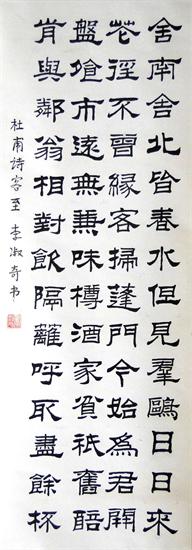 舍南舍北皆春水但見羣鷗日日來
花徑不曾緣客掃蓬門今始為君開
盤飧市遠無兼味樽酒家貧祇舊醅
肯與鄰翁相對飲隔籬呼取盡餘杯
杜甫詩客至 李淑奇书